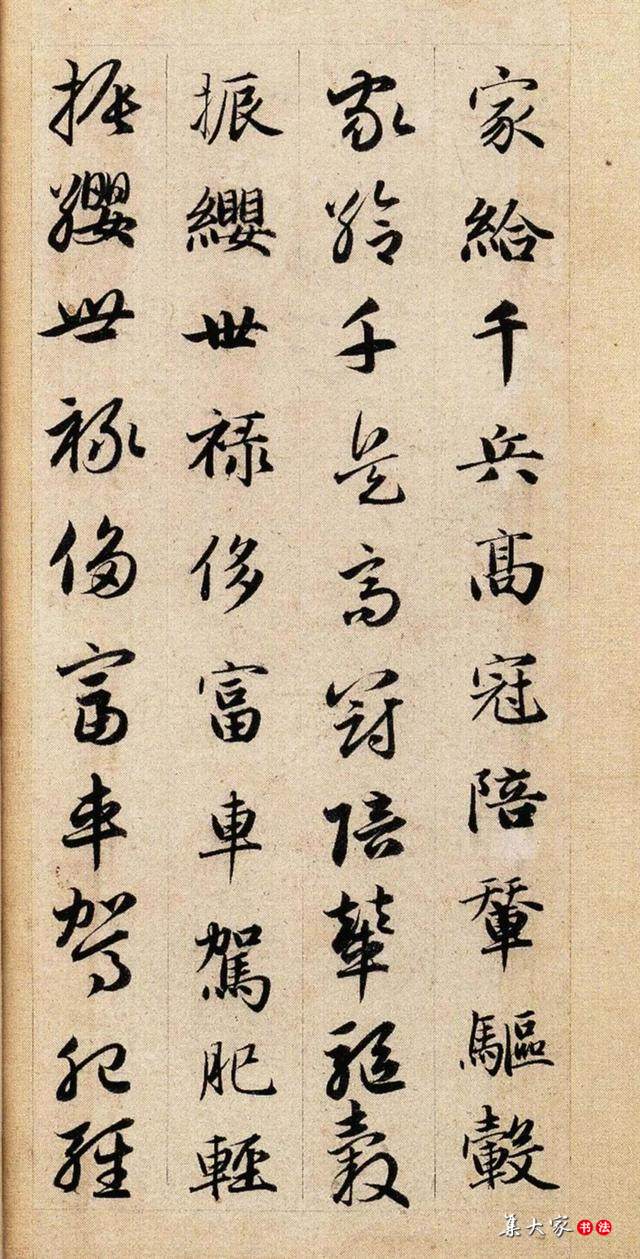 家給千兵高冠陪輦驅轂
家給千兵高冠陪輦驅轂
振纓世祿侈富車駕肥輕
振纓世祿侈富車駕肥輕
集大家书法